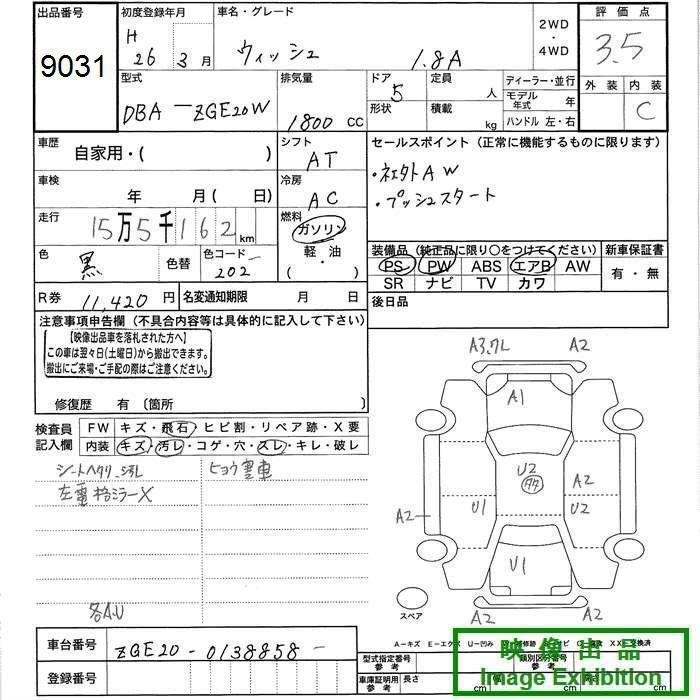 出品番号
9031
初度登録年月
H
26 3 月
車名・グレード
ウィッシュ 1.8A
2WD
・
4WD
評価点
3.5
外装 内装
C
型式
DBA－ZGE20W
排気量
1800 CC
ドア
5
形状
定員
人
積載
kg
ディーラー・並行
モデル年式 年
ハンドル 左・右
車歴
自家用・( )
シフト
AT
セールスポイント（正常に機能するものに限ります）
・プッシュスタート
車検
年 月 ( 日)
冷房
AC
走行
15万5千162 km
燃料
ガソリン
軽・油
( )
色
黒
色替
色コード
202
装備品（純正品に限り○をつけてください）
PS PW ABS エアB AW
SR ナビ TV カワ
新車保証書
有・無
R券
11,420 円
名変通知期限 月 日
後日品
注意事項申告欄（不具合内容等は具体的に記入して下さい）
【映像出品車を落札された方へ】
この車は翌々日(土曜日)から搬出できます。
搬出にご来場・ご手配の際はご注意ください。
修復歴 有〔箇所 〕
検査員
記入欄
FW キズ・飛石・ヒビ割・リペア跡・X要
内装 キズ・汚レ・コゲ・穴・スレ・キレ・破レ
ヒョウ害車
A2
A2
A1
U2
A2
U1
U2
A2
U1
A2
A2
スペア
車台番号
ZGE20-0138858-
登録番号
A－キズ E－エクボ U－凹み
交換済
型式指定番号
参考
類別区分番号
参考
車庫証明用
参考
長さ
cm
cm
cm
映像出品
Image Exhibition